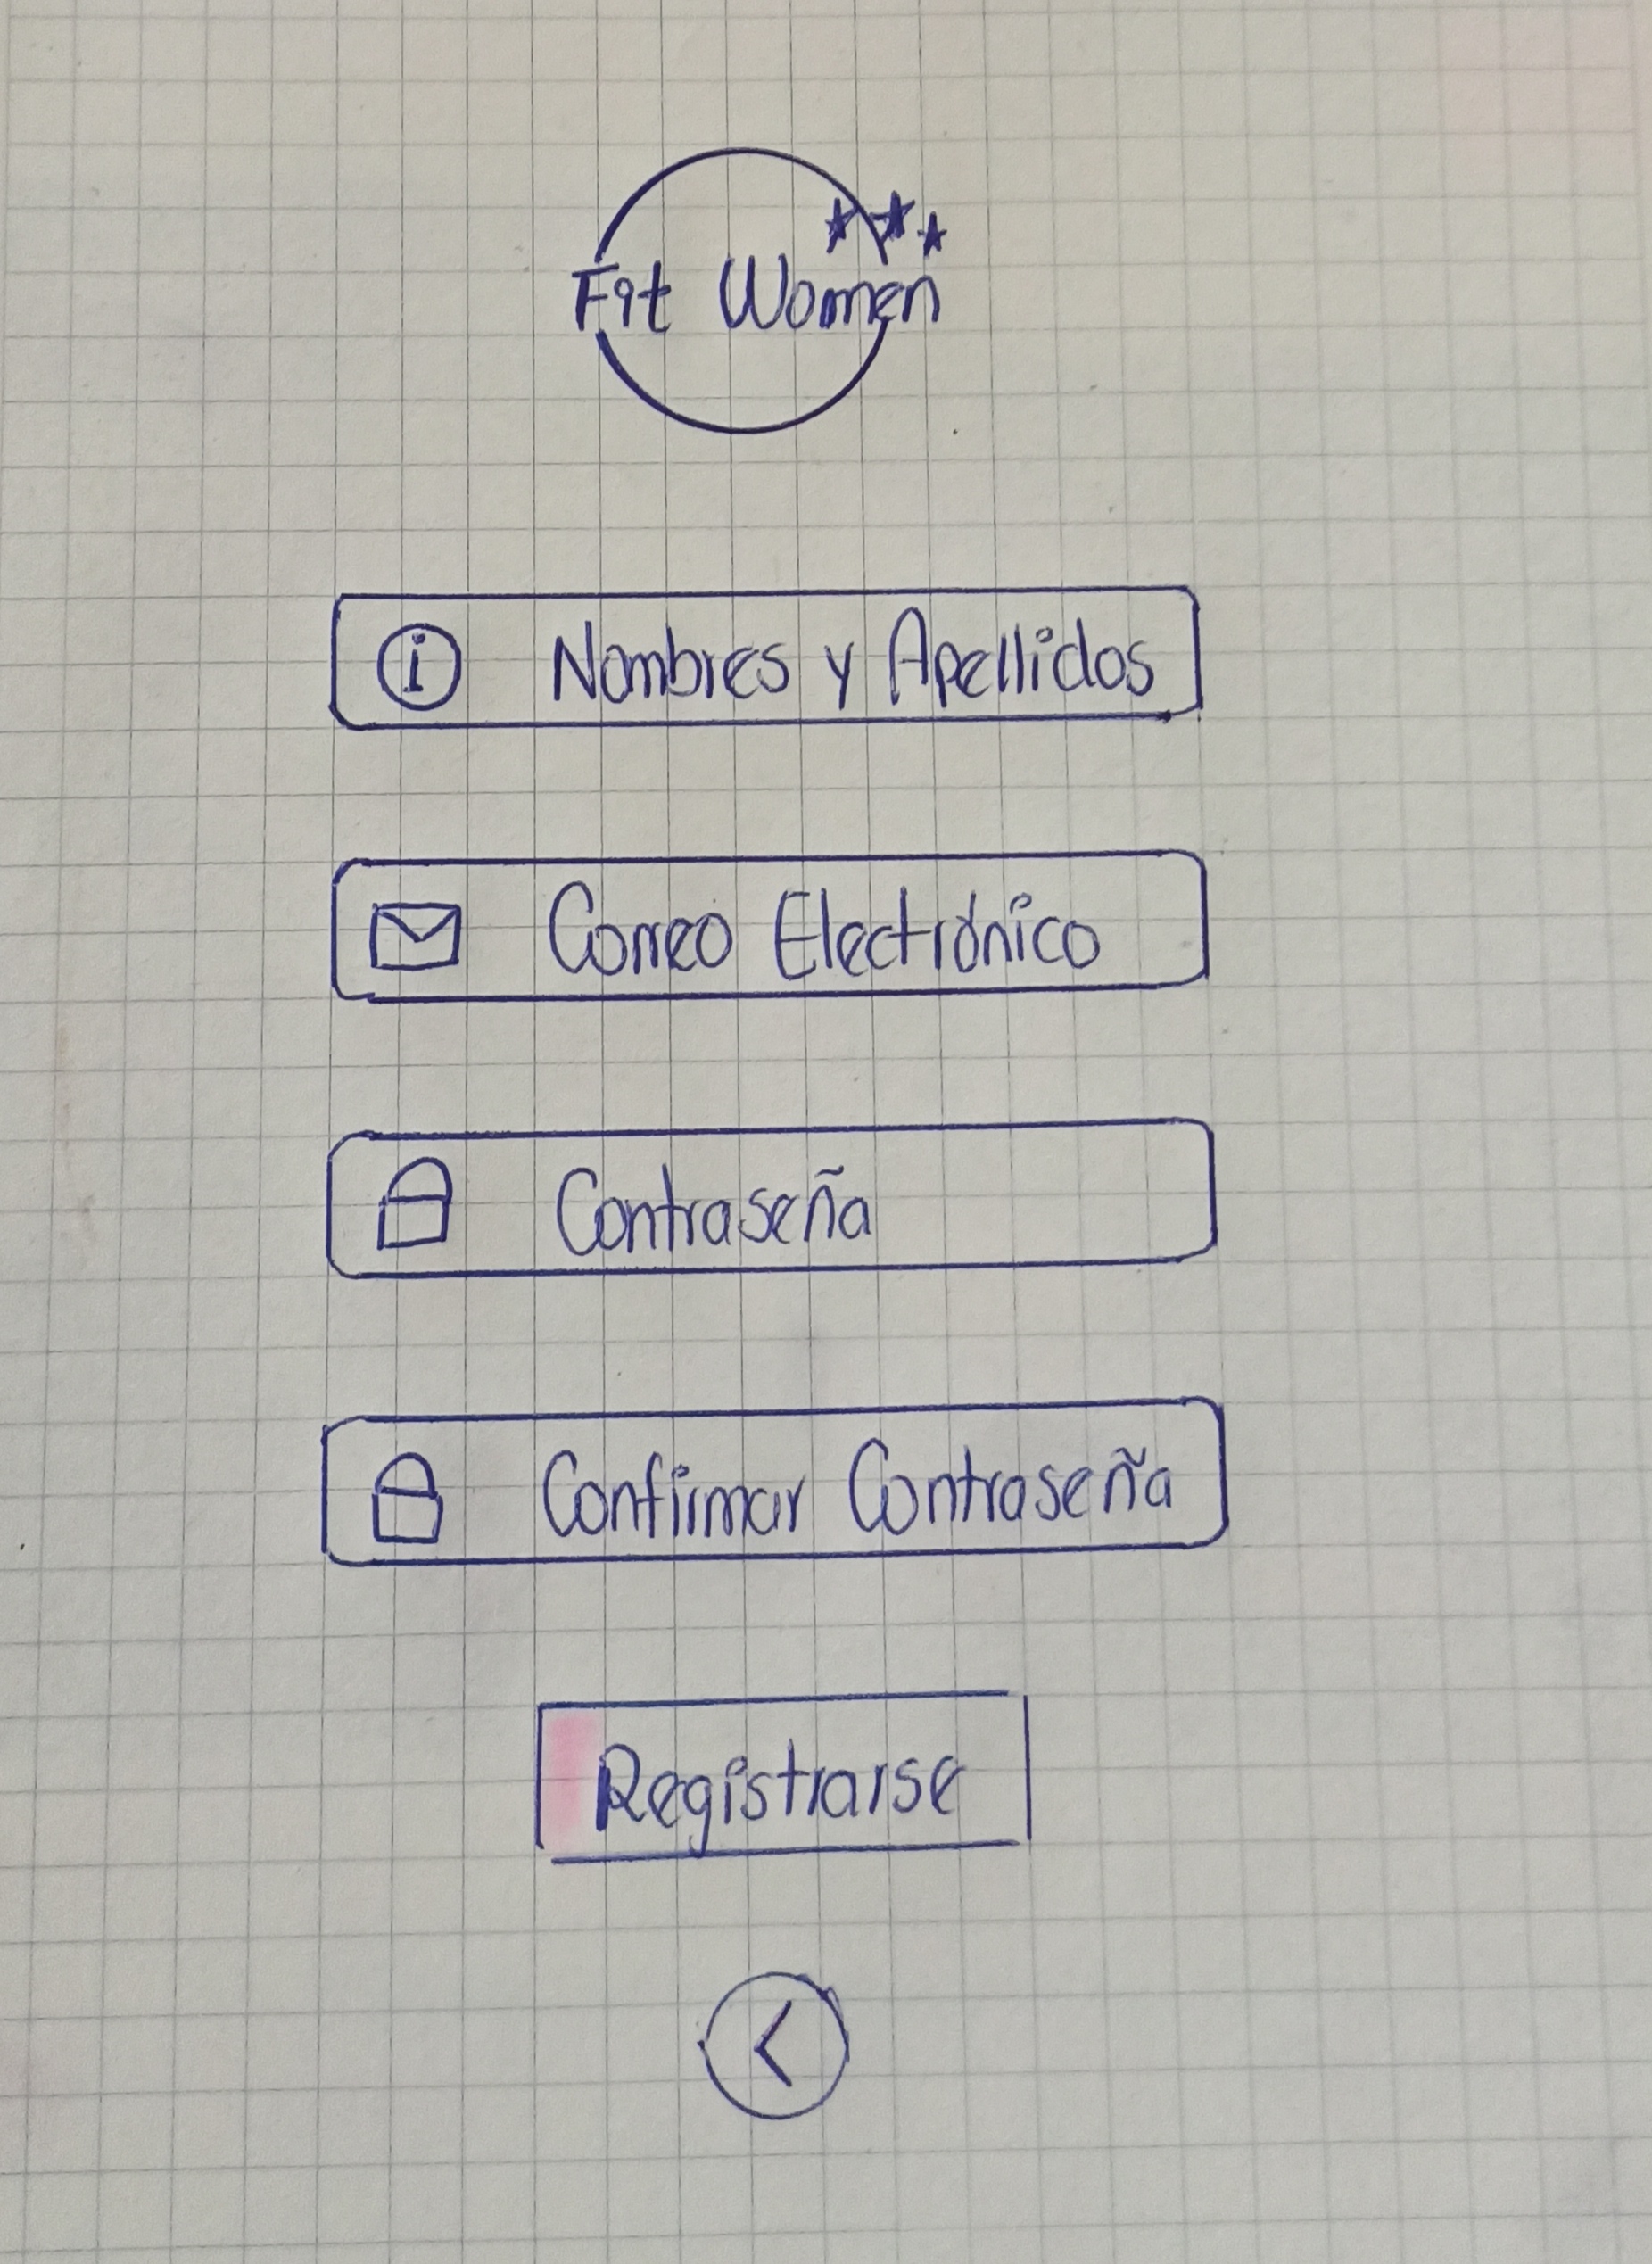 Fit Women
Nombres y Apellidos
Correo Electrónico
Contraseña
Confirmar Contraseña
Registrarse